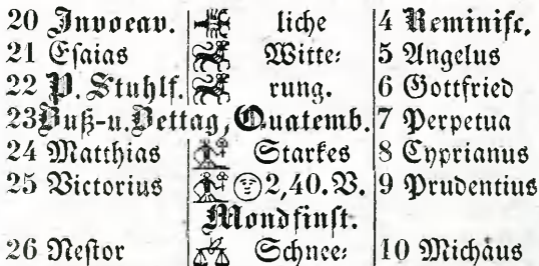 20 Invocav. liche 4 Reminisc.
21 Esaias Witte: 5 Angelus
22 P. Stuhlf. rung. 6 Gottfried
23 Buß-u. Bettag, Quatemb. 7 Perpetua
24 Matthias Starkes 8 Cyprianus
25 Victorius 2,40. V. 9 Prudentius
Mondfinst.
26 Nestor Schnee: 10 Michäus